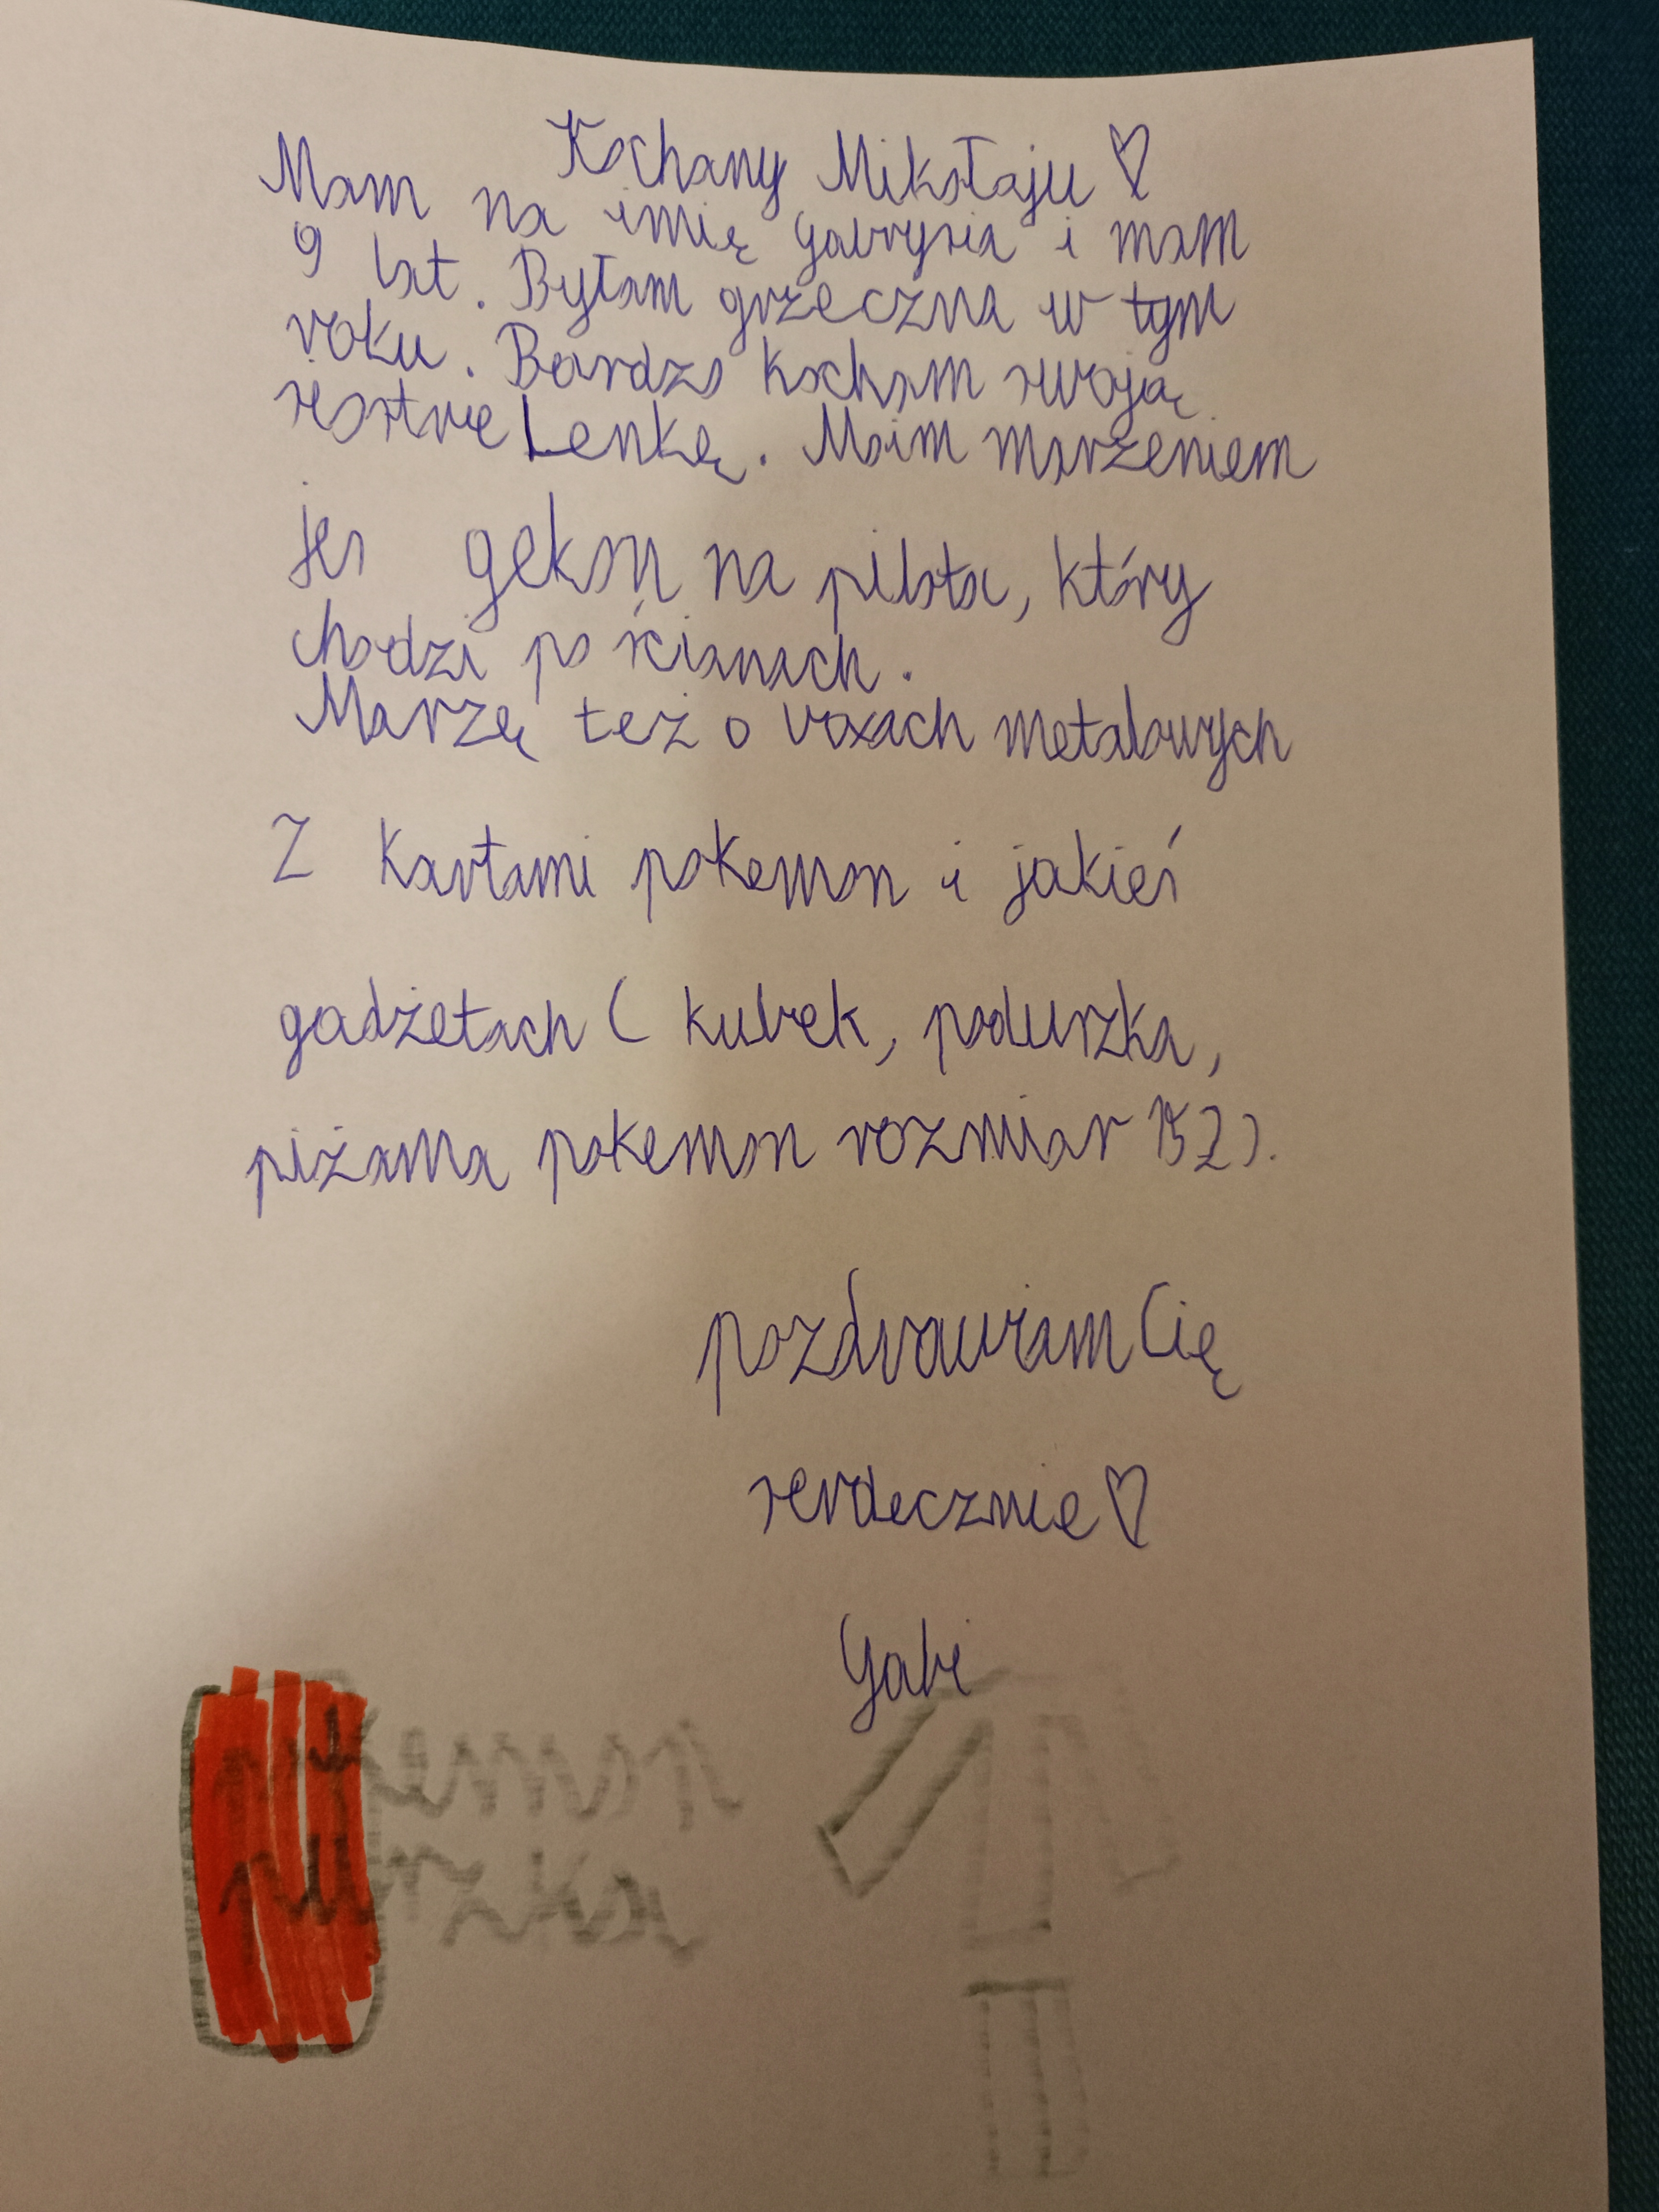 Kochany Mikołaju ♡
Mam na imię Gabrysia i mam
9 lat. Byłam grzeczna w tym
roku. Bardzo kocham swoją
siostrę Lenkę. Moim marzeniem
jes gekon na pilota, który
chodzi po ścianach.
Marzę też o boxach metalowych
z kartami pokemon i jakieś
gadżetach ( kubek, poduszka,
piżama pokemon rozmiar 152).
pozdrawiam Cię
serdecznie ♡
Gabi
pokemon